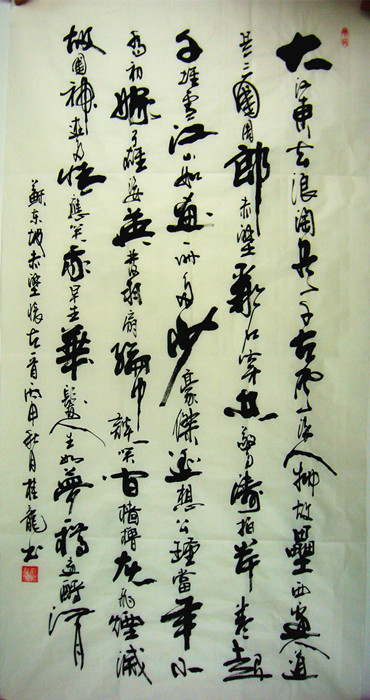 大江東去浪淘尽千古風流人物故壘西邊人道
是三國周郎赤壁亂石穿空驚濤拍岸卷起
千堆雪江山如畫一時多少豪傑遥想公瑾當年小
喬初嫁了雄姿英發羽扇綸巾談笑間檣櫓灰飛煙滅
故國神遊多情應笑我早生華髮人生如夢一樽還酹江月
蘇東坡赤壁懷古一首丙申秋月桂龍书